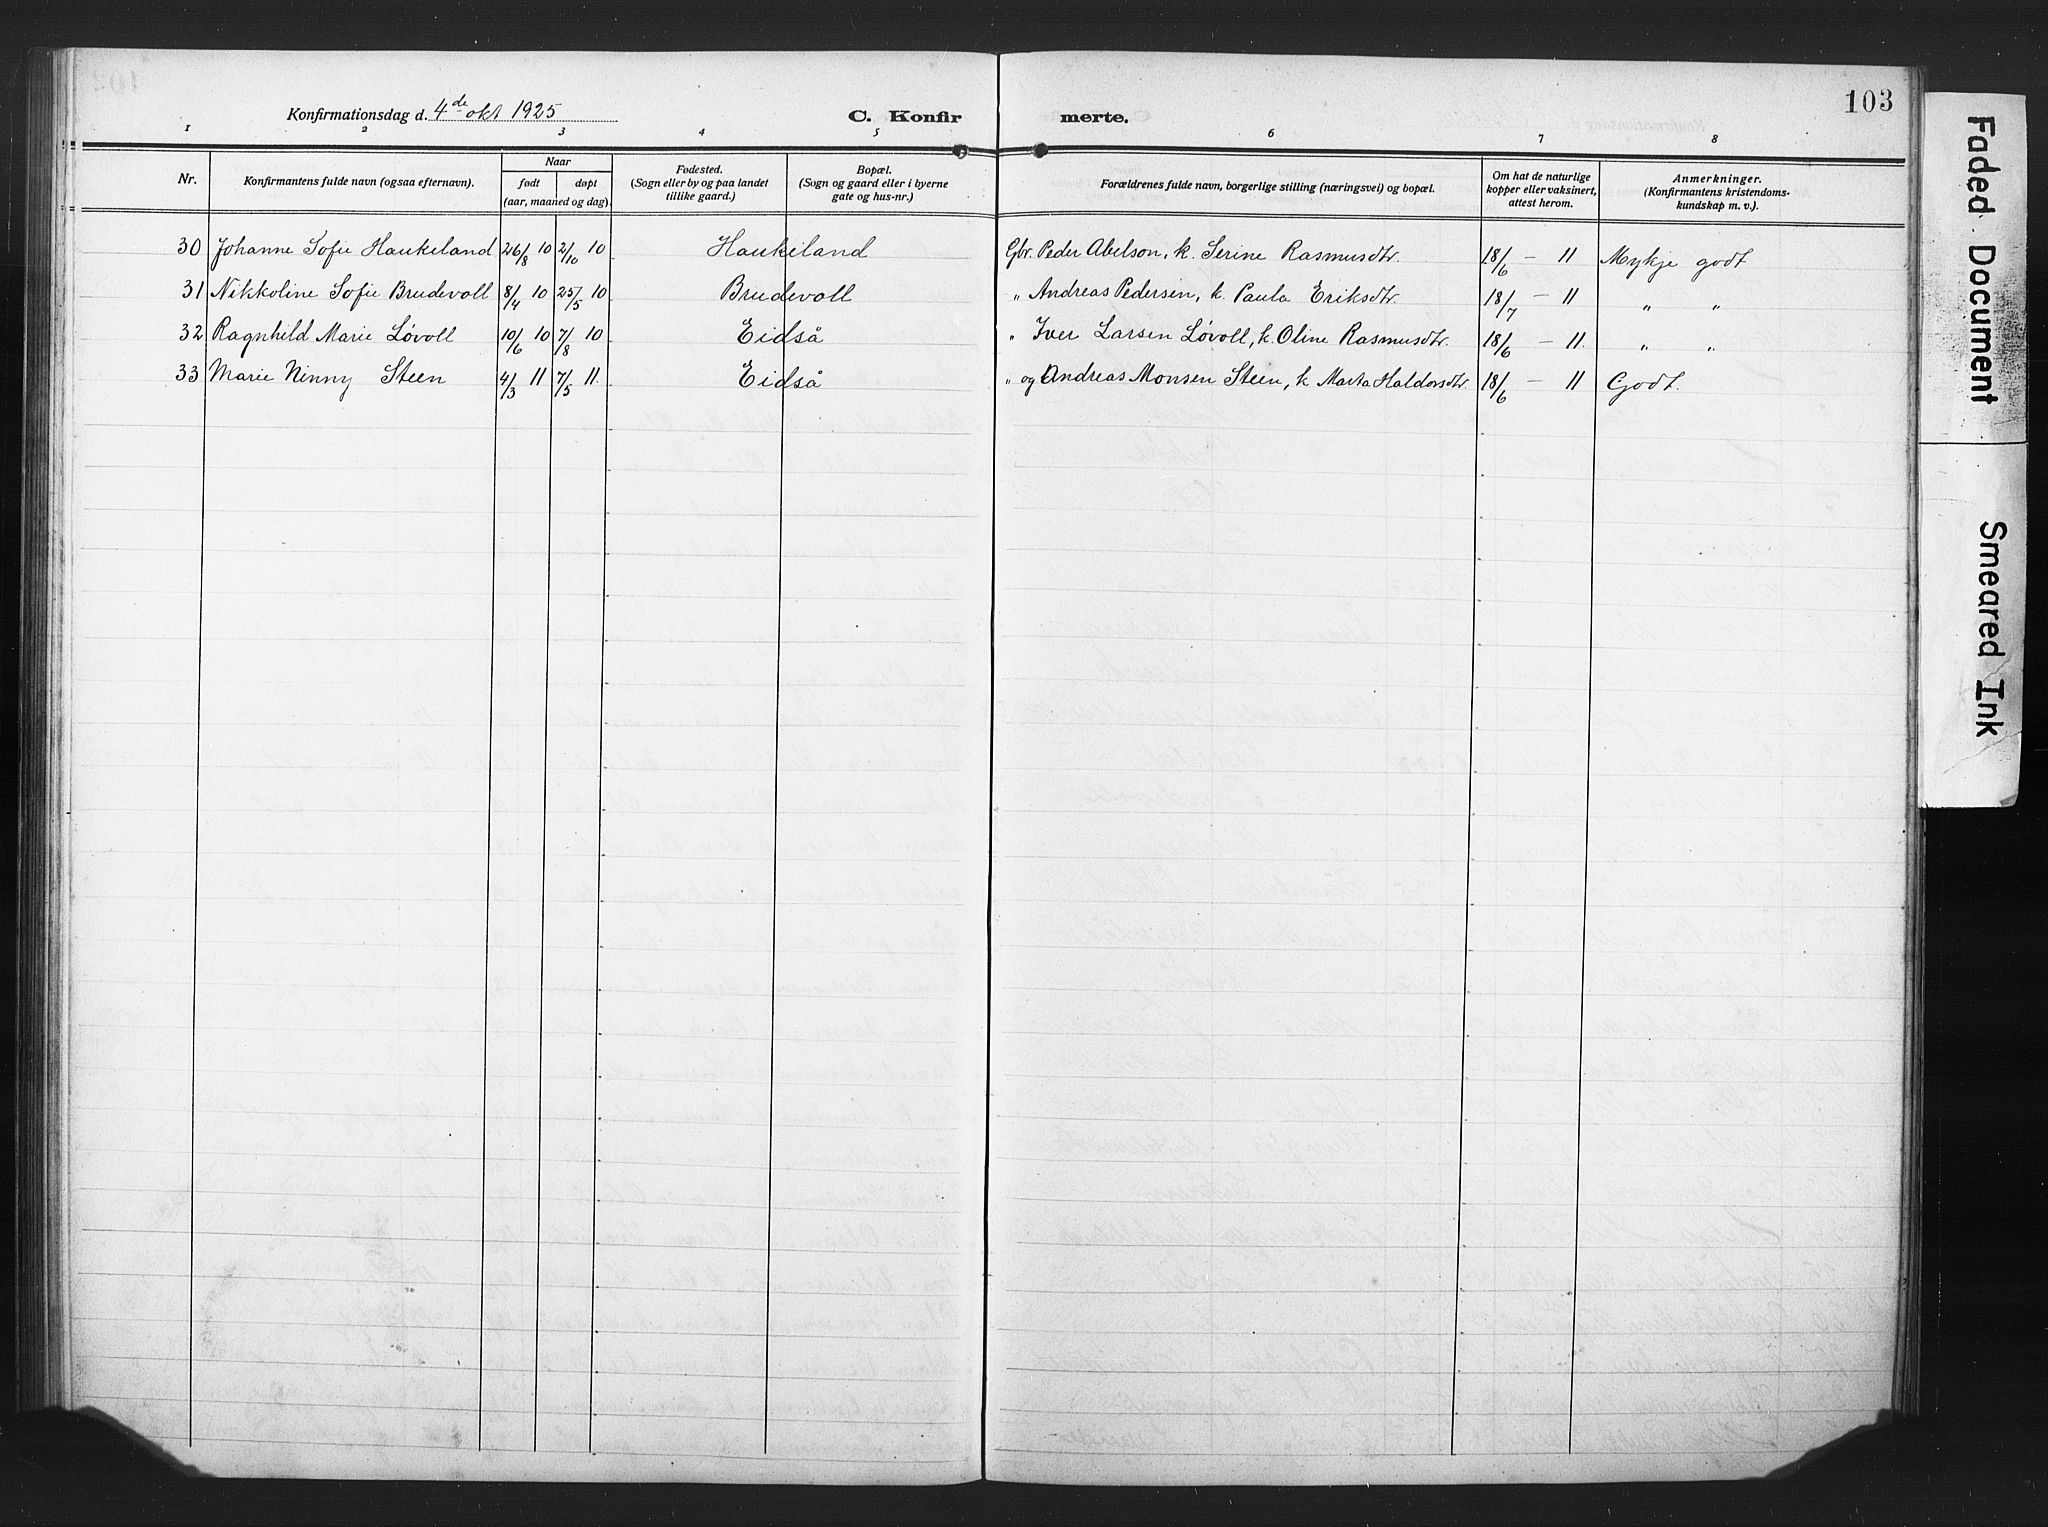 103
Konfirmationsdag d. 4de okt 1925
C. Konfirmerte.
1 2 3 4 5 6 7 8
Nr.
Konfirmantens fulde navn (ogsaa efternavn).
Naar
født døpt
(aar, maaned og dag).
Fødested.
(Sogn eller by og paa landet
tillike gaard.)
Bopæl.
(Sogn og gaard eller i byerne
gate og hus-nr.)
Forældrenes fulde navn, borgerlige stilling (næringsvei) og bopæl.
Om hat de naturlige
kopper eller vaksinert,
attest herom.
Anmerkninger.
(Konfirmantens kristendoms-
kundskap m. v.)
30 Johanne Sofie Haukeland 26/8 10 2/10 10 Haukeland Gbr. Peder Abelson, k. Serine Rasmusdtr. 18/6 — 11 Mykje godt
31 Nikkoline Sofie Brudevoll 8/4 10 25/5 10 Brudevoll " Andreas Pedersen, k. Paula Eriksdtr. 18/7 — 11 " "
32 Ragnhild Marie Løvoll 10/6 10 7/8 10 Eidså " Iver Larsen Løvoll, k. Oline Rasmusdtr. 18/6 — 11. " "
33 Marie Ninny Steen 4/3 11 7/5 11. Eidså " og Andreas Monsen Steen, k Marta Haldorsdtr. 18/6 — 11 Godt.
Faded Document
Smeared Ink